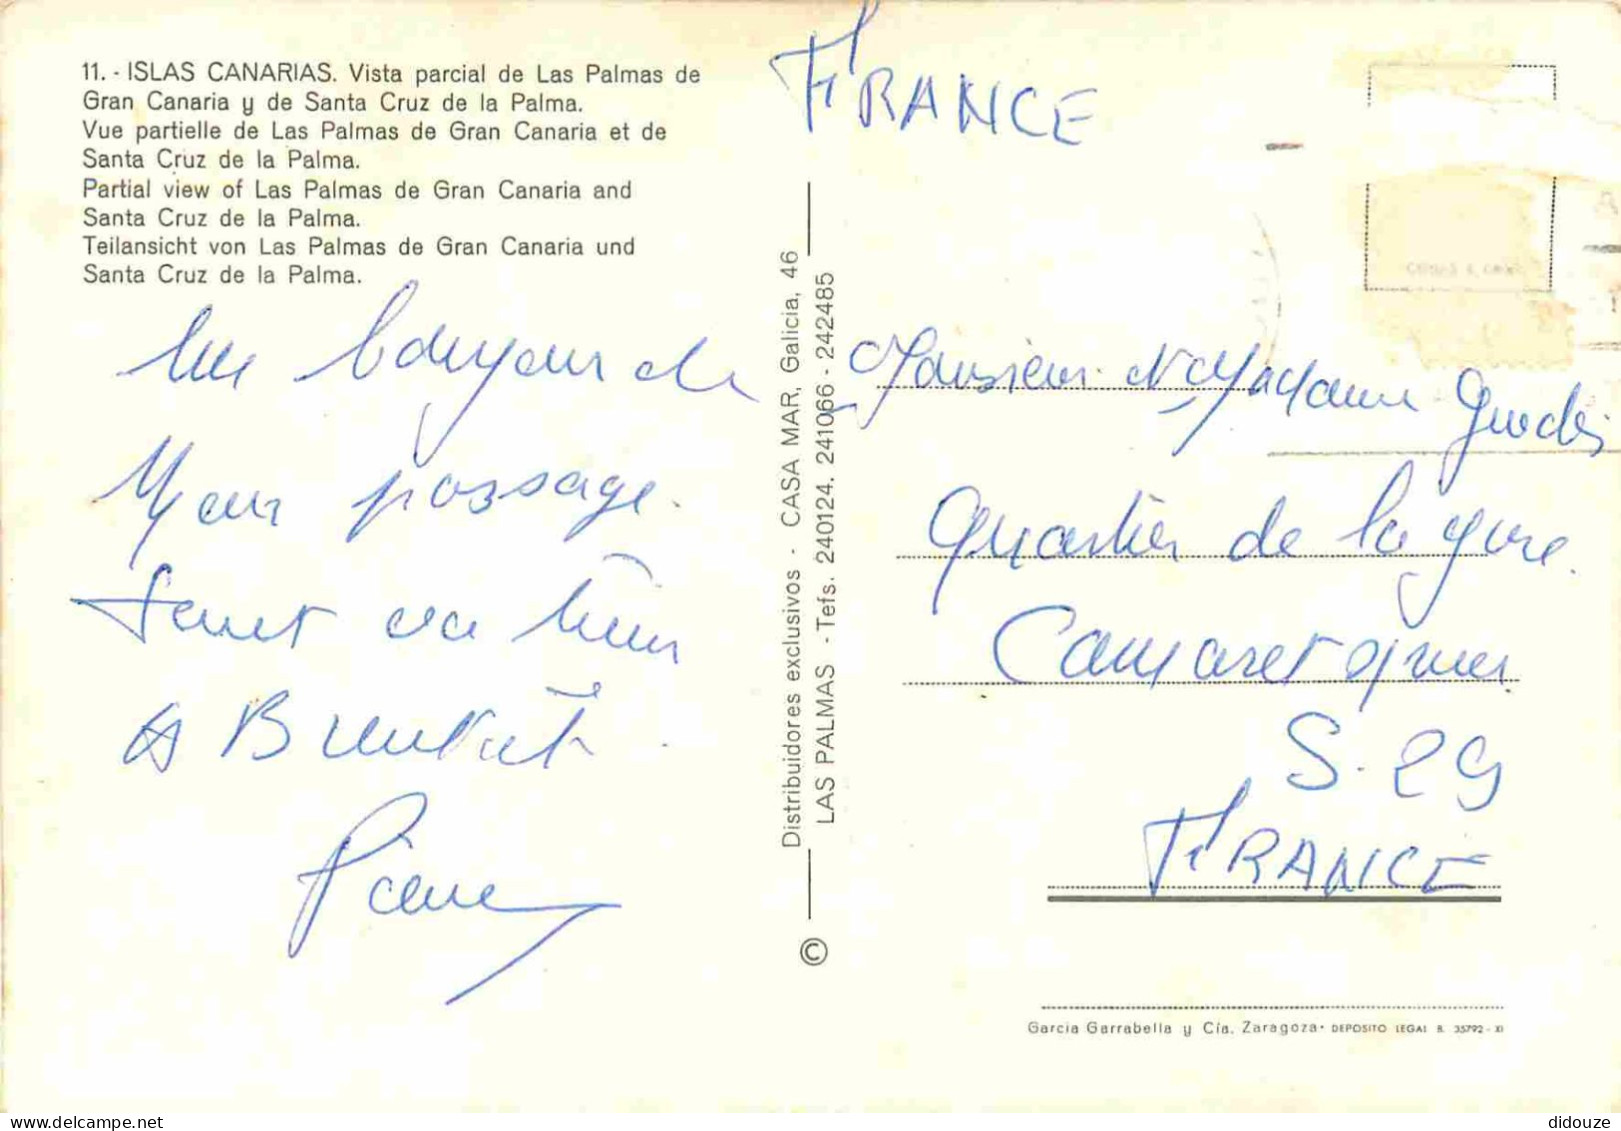 11. - ISLAS CANARIAS. Vista parcial de Las Palmas de
Gran Canaria y de Santa Cruz de la Palma.
Vue partielle de Las Palmas de Gran Canaria et de
Santa Cruz de la Palma.
Partial view of Las Palmas de Gran Canaria and
Santa Cruz de la Palma.
Teilansicht von Las Palmas de Gran Canaria und
Santa Cruz de la Palma.
bonjour de
Mon passage.
Tout va bien
a Bientôt.
Pierre
Distribuidores exclusivos - CASA MAR, Galicia, 46
LAS PALMAS - Tefs. 240124. 241066 - 242485
©
FRANCE
Monsieur Madame
Quartier de la gare.
Camaret
S. 29
FRANCE
Garcia Garrabella y Cía. Zaragoza - DEPOSITO LEGAL B. 35792 - XI
didouze